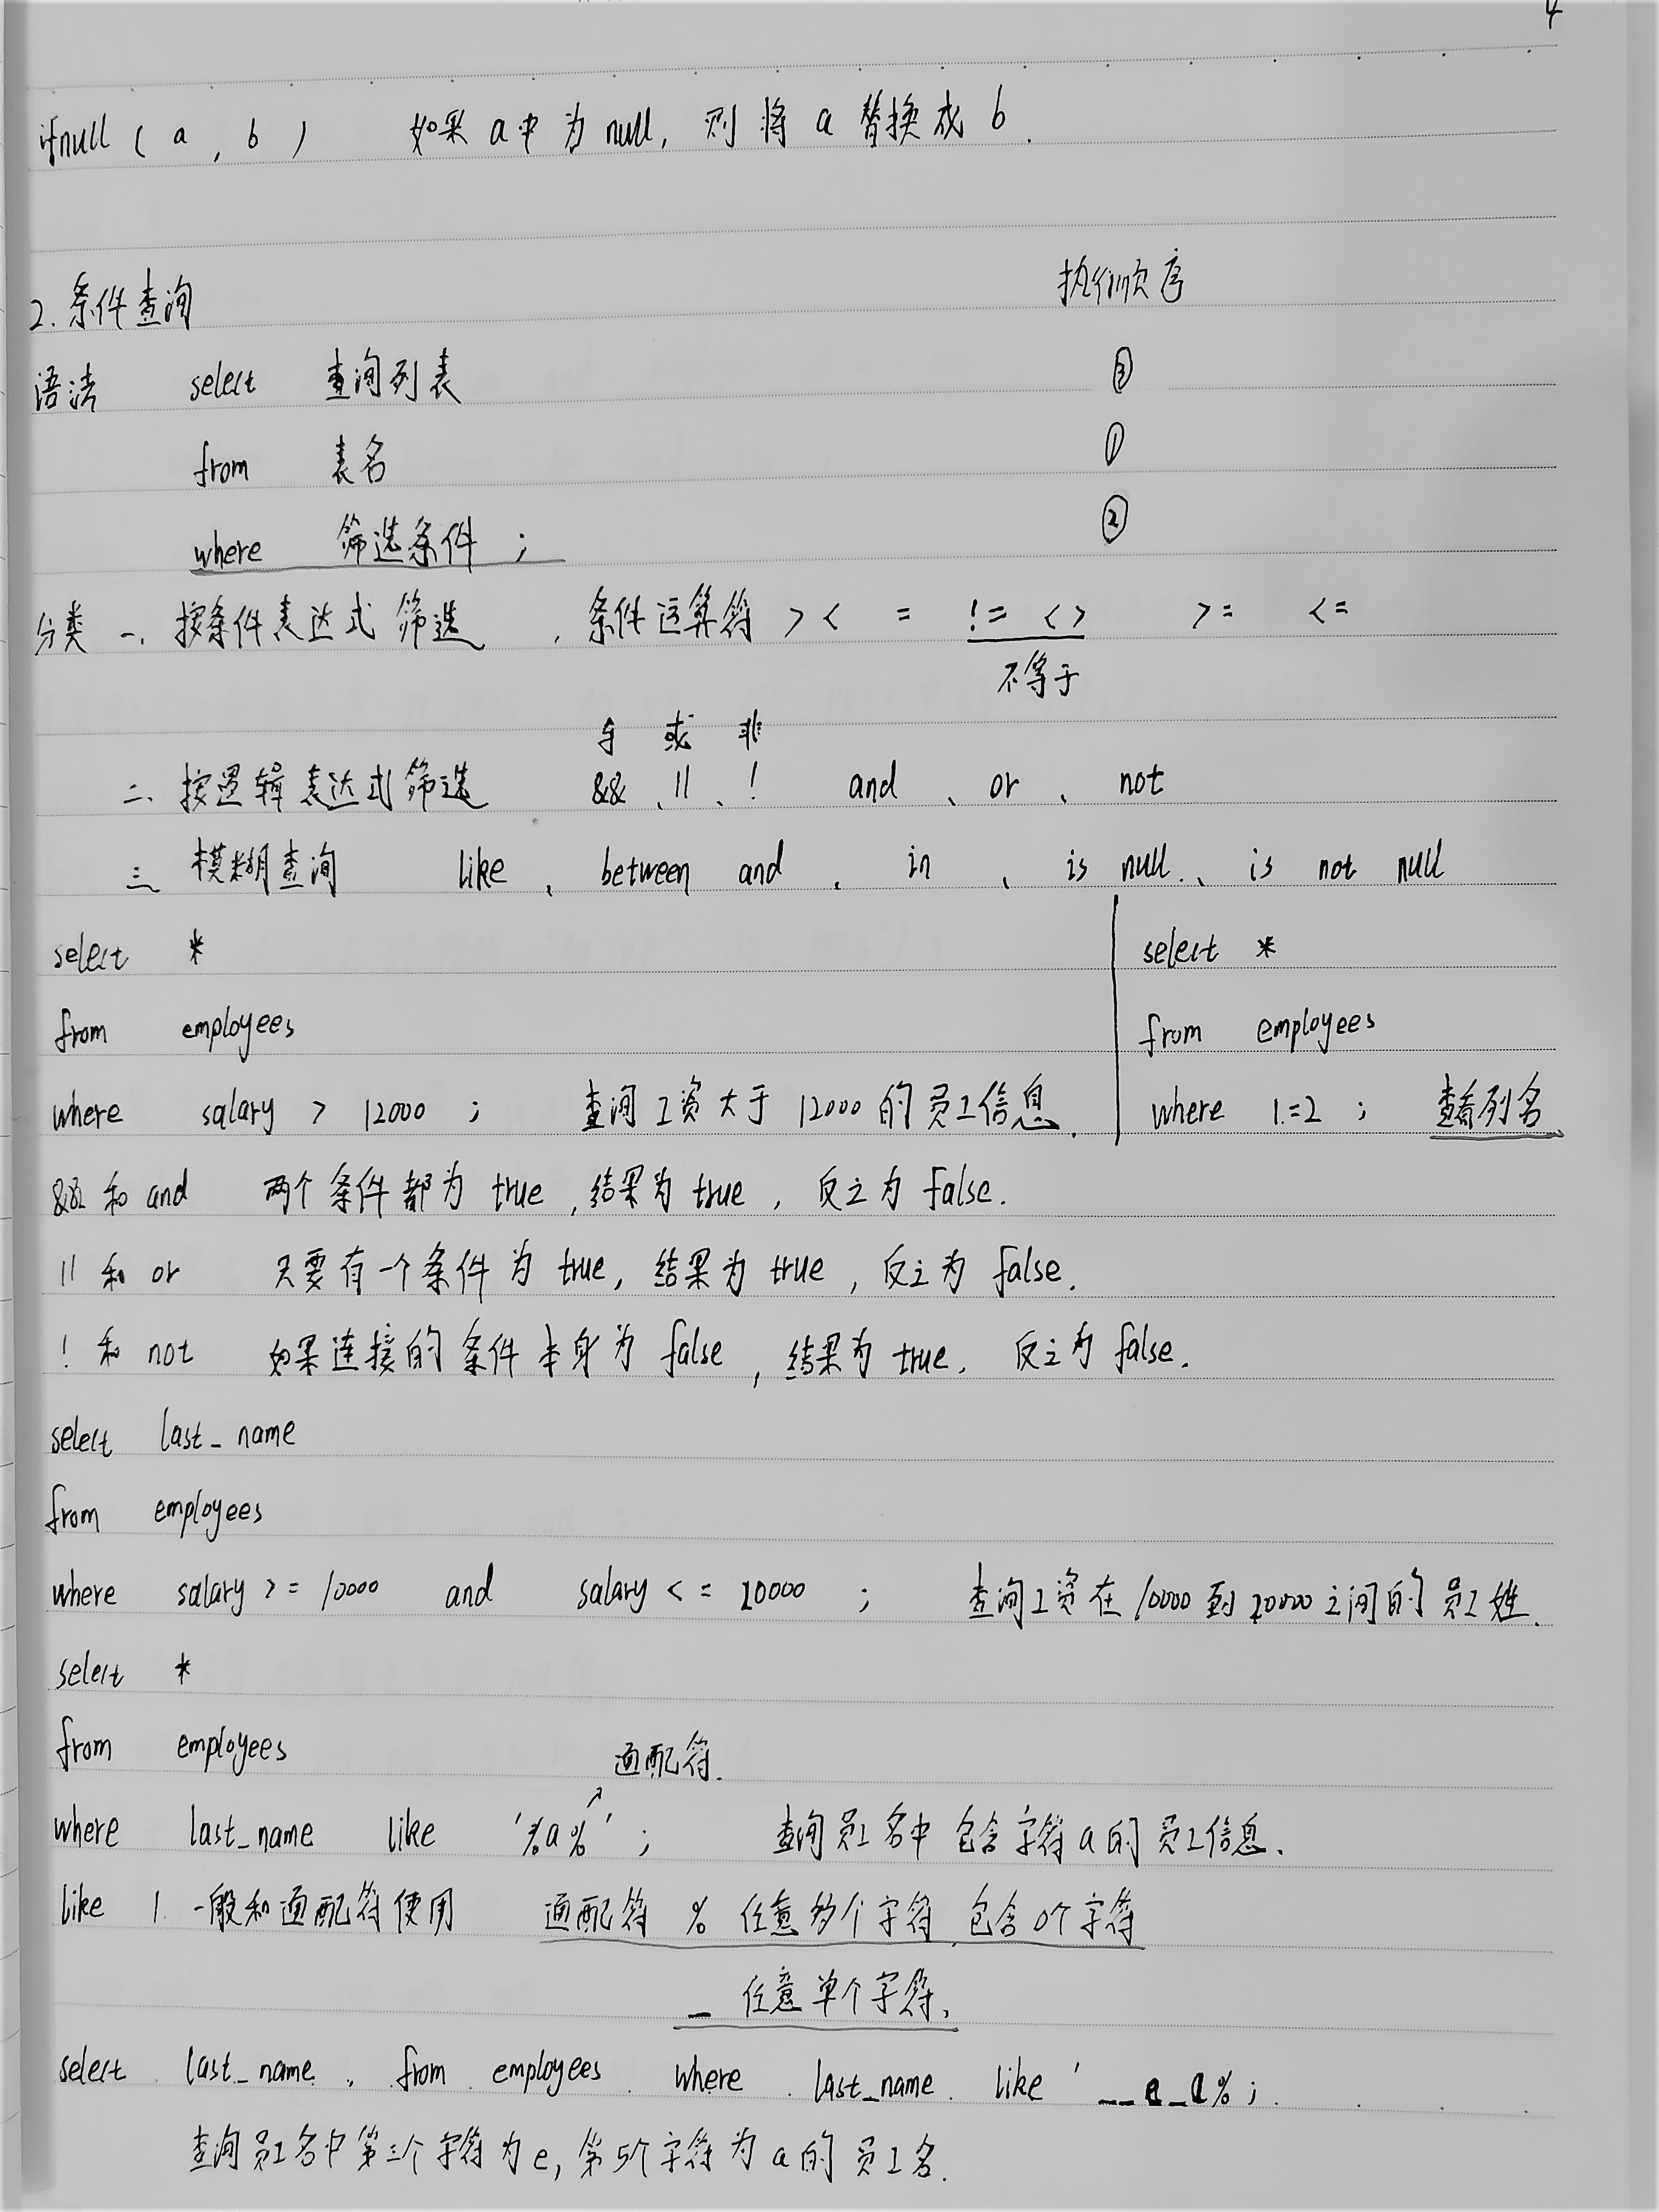 4
ifnull ( a , b ) 如果 a中 为 null, 则 将 a 替换成 b.
2. 条件查询 执行顺序
语法 select 查询列表 ③
from 表名 ①
where 筛选条件 ; ②
分类 一、按条件表达式 筛选 、条件运算符 > < = != <> >= <=
不等于
与 或 非
二、按逻辑表达式筛选 && 、|| 、! and 、or 、not
三、模糊查询 like 、between and 、in 、is null 、is not null
select *
from employees
where salary > 12000 ; 查询工资大于 12000 的员工信息.
select *
from employees
where 1=2 ; 查看列名
&& 和 and 两个条件都为 true ,结果为 true , 反之为 false.
|| 和 or 只要有一个条件为 true, 结果为 true , 反之为 false.
! 和 not 如果连接的条件本身为 false , 结果为 true, 反之为 false.
select last_name
from employees
where salary >= 10000 and salary <= 20000 ; 查询工资在 10000 到 20000 之间的员工姓.
select *
from employees
通配符.
where last_name like '%a%' ; 查询员工名中包含字符a的员工信息.
like 1. 一般和通配符使用 通配符 % 任意多个字符,包含0个字符
_ 任意单个字符、
select last_name , from employees where last_name like '__e_a% ;
查询员工名中第三个字符为e, 第5个字符为a的员工名.